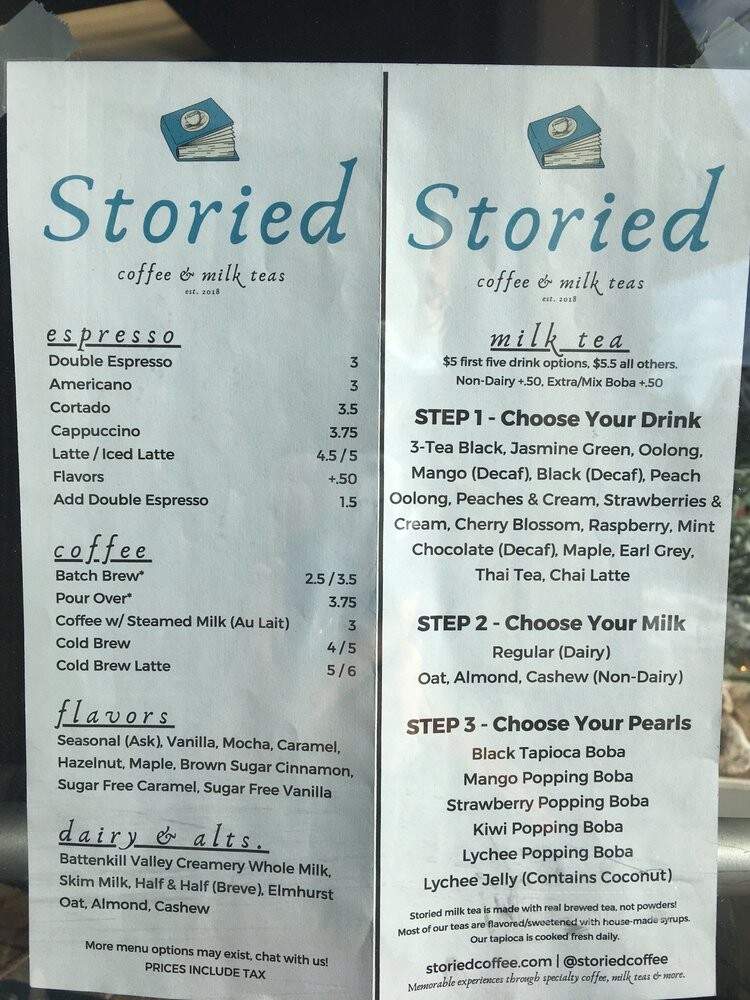 Storied
coffee & milk teas
est. 2018
espresso
Double Espresso 3
Americano 3
Cortado 3.5
Cappuccino 3.75
Latte / Iced Latte 4.5 / 5
Flavors +.50
Add Double Espresso 1.5
coffee
Batch Brew* 2.5 / 3.5
Pour Over* 3.75
Coffee w/ Steamed Milk (Au Lait) 3
Cold Brew 4 / 5
Cold Brew Latte 5 / 6
flavors
Seasonal (Ask), Vanilla, Mocha, Caramel,
Hazelnut, Maple, Brown Sugar Cinnamon,
Sugar Free Caramel, Sugar Free Vanilla
dairy & alts.
Battenkill Valley Creamery Whole Milk,
Skim Milk, Half & Half (Breve), Elmhurst
Oat, Almond, Cashew
More menu options may exist, chat with us!
PRICES INCLUDE TAX
Storied
coffee & milk teas
est. 2018
milk tea
$5 first five drink options, $5.5 all others.
Non-Dairy +.50, Extra/Mix Boba +.50
STEP 1 - Choose Your Drink
3-Tea Black, Jasmine Green, Oolong,
Mango (Decaf), Black (Decaf), Peach
Oolong, Peaches & Cream, Strawberries &
Cream, Cherry Blossom, Raspberry, Mint
Chocolate (Decaf), Maple, Earl Grey,
Thai Tea, Chai Latte
STEP 2 - Choose Your Milk
Regular (Dairy)
Oat, Almond, Cashew (Non-Dairy)
STEP 3 - Choose Your Pearls
Black Tapioca Boba
Mango Popping Boba
Strawberry Popping Boba
Kiwi Popping Boba
Lychee Popping Boba
Lychee Jelly (Contains Coconut)
Storied milk tea is made with real brewed tea, not powders!
Most of our teas are flavored/sweetened with house-made syrups.
Our tapioca is cooked fresh daily.
storiedcoffee.com | @storiedcoffee
Memorable experiences through specialty coffee, milk teas & more.